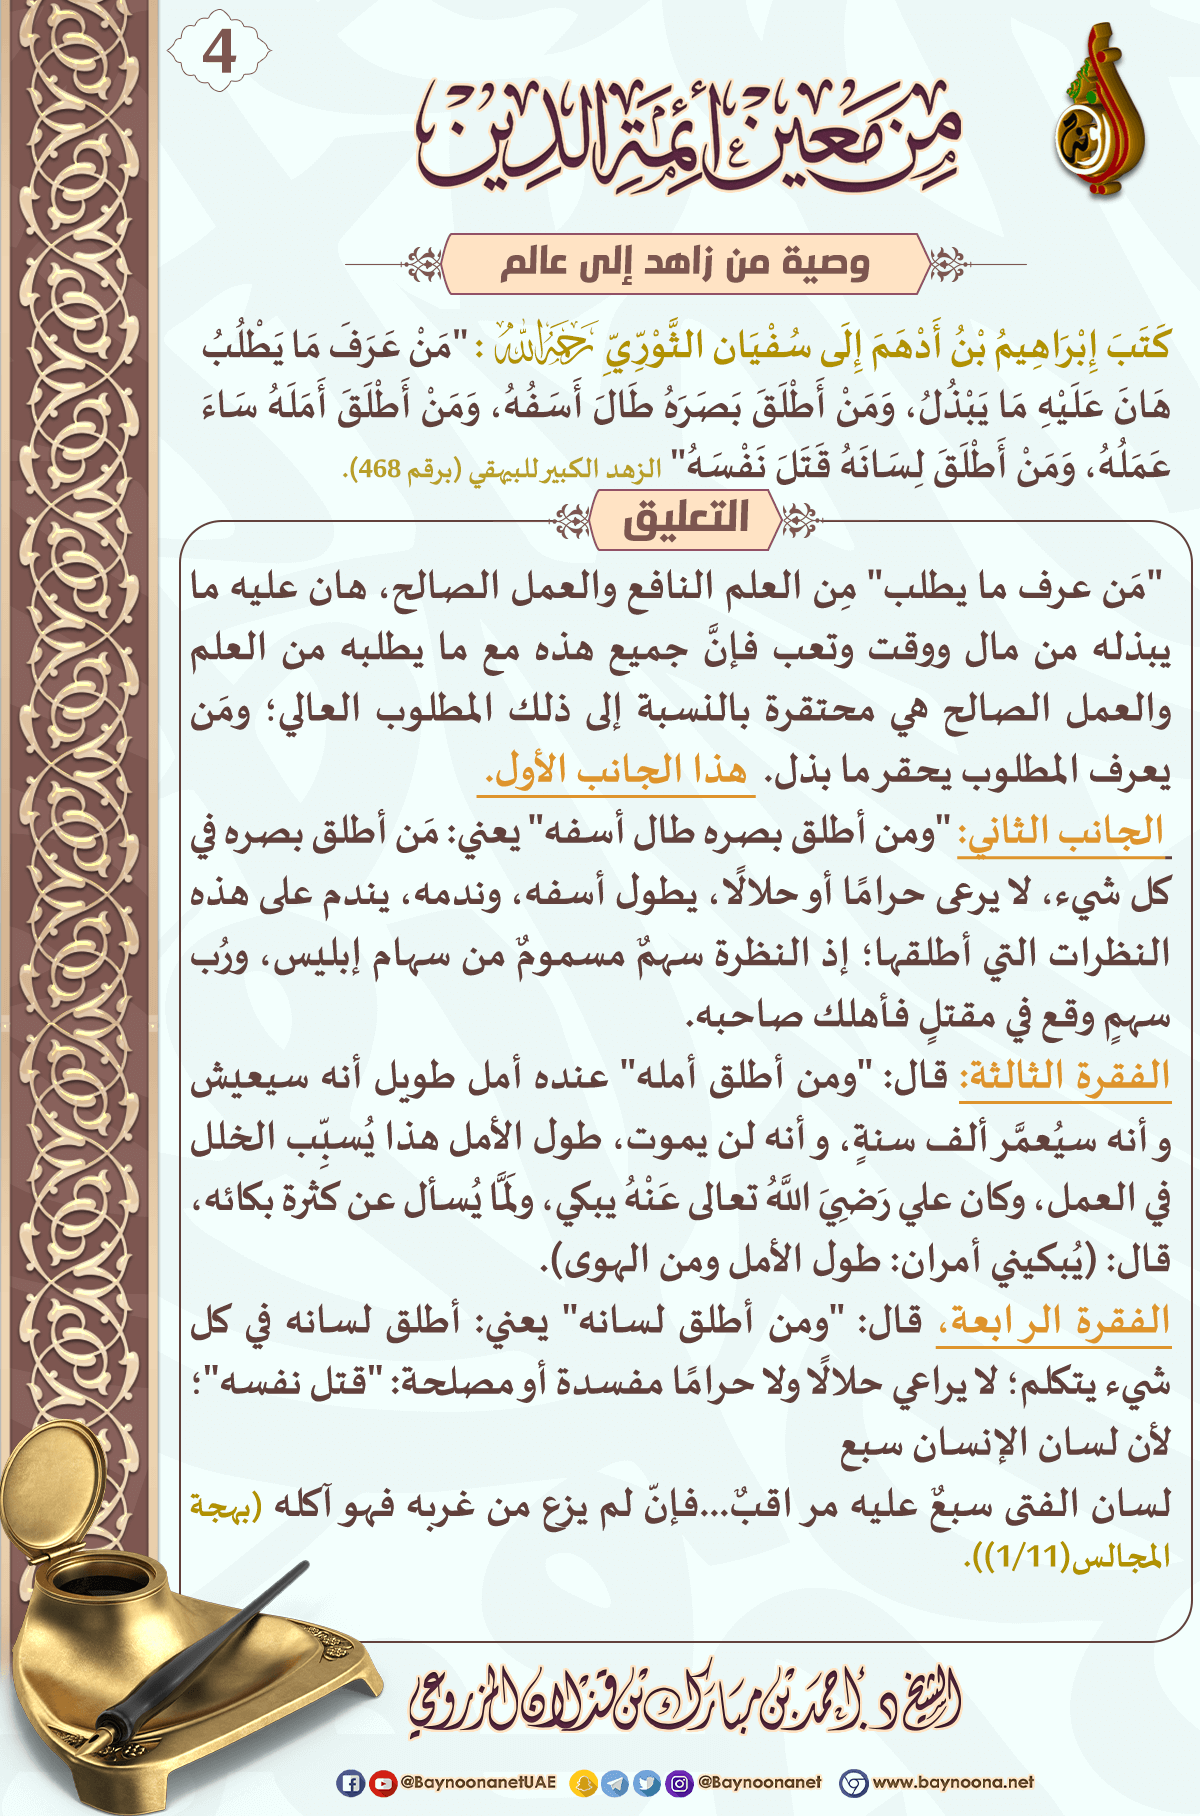 4
مِن مَعين أئِمَةِ الدِين
وصية من زاهد إلى عالم
كَتَبَ إِبْرَاهِيمُ بْنُ أَدْهَمَ إِلَى سُفْيَان الثَّوْرِيِّ رَحِمَهُ اللهُ : "مَنْ عَرَفَ مَا يَطْلُبُ
هَانَ عَلَيْهِ مَا يَبْذُلُ، وَمَنْ أَطْلَقَ بَصَرَهُ طَالَ أَسَفُهُ، وَمَنْ أَطْلَقَ أَمَلَهُ سَاءَ
عَمَلُهُ، وَمَنْ أَطْلَقَ لِسَانَهُ قَتَلَ نَفْسَهُ" الزهد الكبير للبيهقي (برقم 468).
التعليق
"مَن عرف ما يطلب" مِن العلم النافع والعمل الصالح، هان عليه ما
يبذله من مال ووقت وتعب فإنَّ جميع هذه مع ما يطلبه من العلم
والعمل الصالح هي محتقرة بالنسبة إلى ذلك المطلوب العالي؛ ومَن
يعرف المطلوب يحقر ما بذل. هذا الجانب الأول.
الجانب الثاني: "ومن أطلق بصره طال أسفه" يعني: مَن أطلق بصره في
كل شيء، لا يرعى حرامًا أو حلالًا، يطول أسفه، وندمه، يندم على هذه
النظرات التي أطلقها؛ إذ النظرة سهمٌ مسمومٌ من سهام إبليس، ورُب
سهمٍ وقع في مقتلٍ فأهلك صاحبه.
الفقرة الثالثة: قال: "ومن أطلق أمله" عنده أمل طويل أنه سيعيش
وأنه سيُعمَّر ألف سنةٍ، وأنه لن يموت، طول الأمل هذا يُسبِّب الخلل
في العمل، وكان علي رَضِيَ اللَّهُ تعالى عَنْهُ يبكي، ولَمَّا يُسأل عن كثرة بكائه،
قال: (يُبكيني أمران: طول الأمل ومن الهوى).
الفقرة الرابعة، قال: "ومن أطلق لسانه" يعني: أطلق لسانه في كل
شيء يتكلم؛ لا يراعي حلالًا ولا حرامًا مفسدة أو مصلحة: "قتل نفسه"؛
لأن لسان الإنسان سبع
لسان الفتى سبعٌ عليه مراقبٌ...فإنّ لم يزع من غربه فهو آكله (بهجة
المجالس(1/11)).
الشيخ د. أحمد بن مبارك بن قذلان المزروعي
@BaynoonanetUAE @Baynoonanet www.baynoona.net